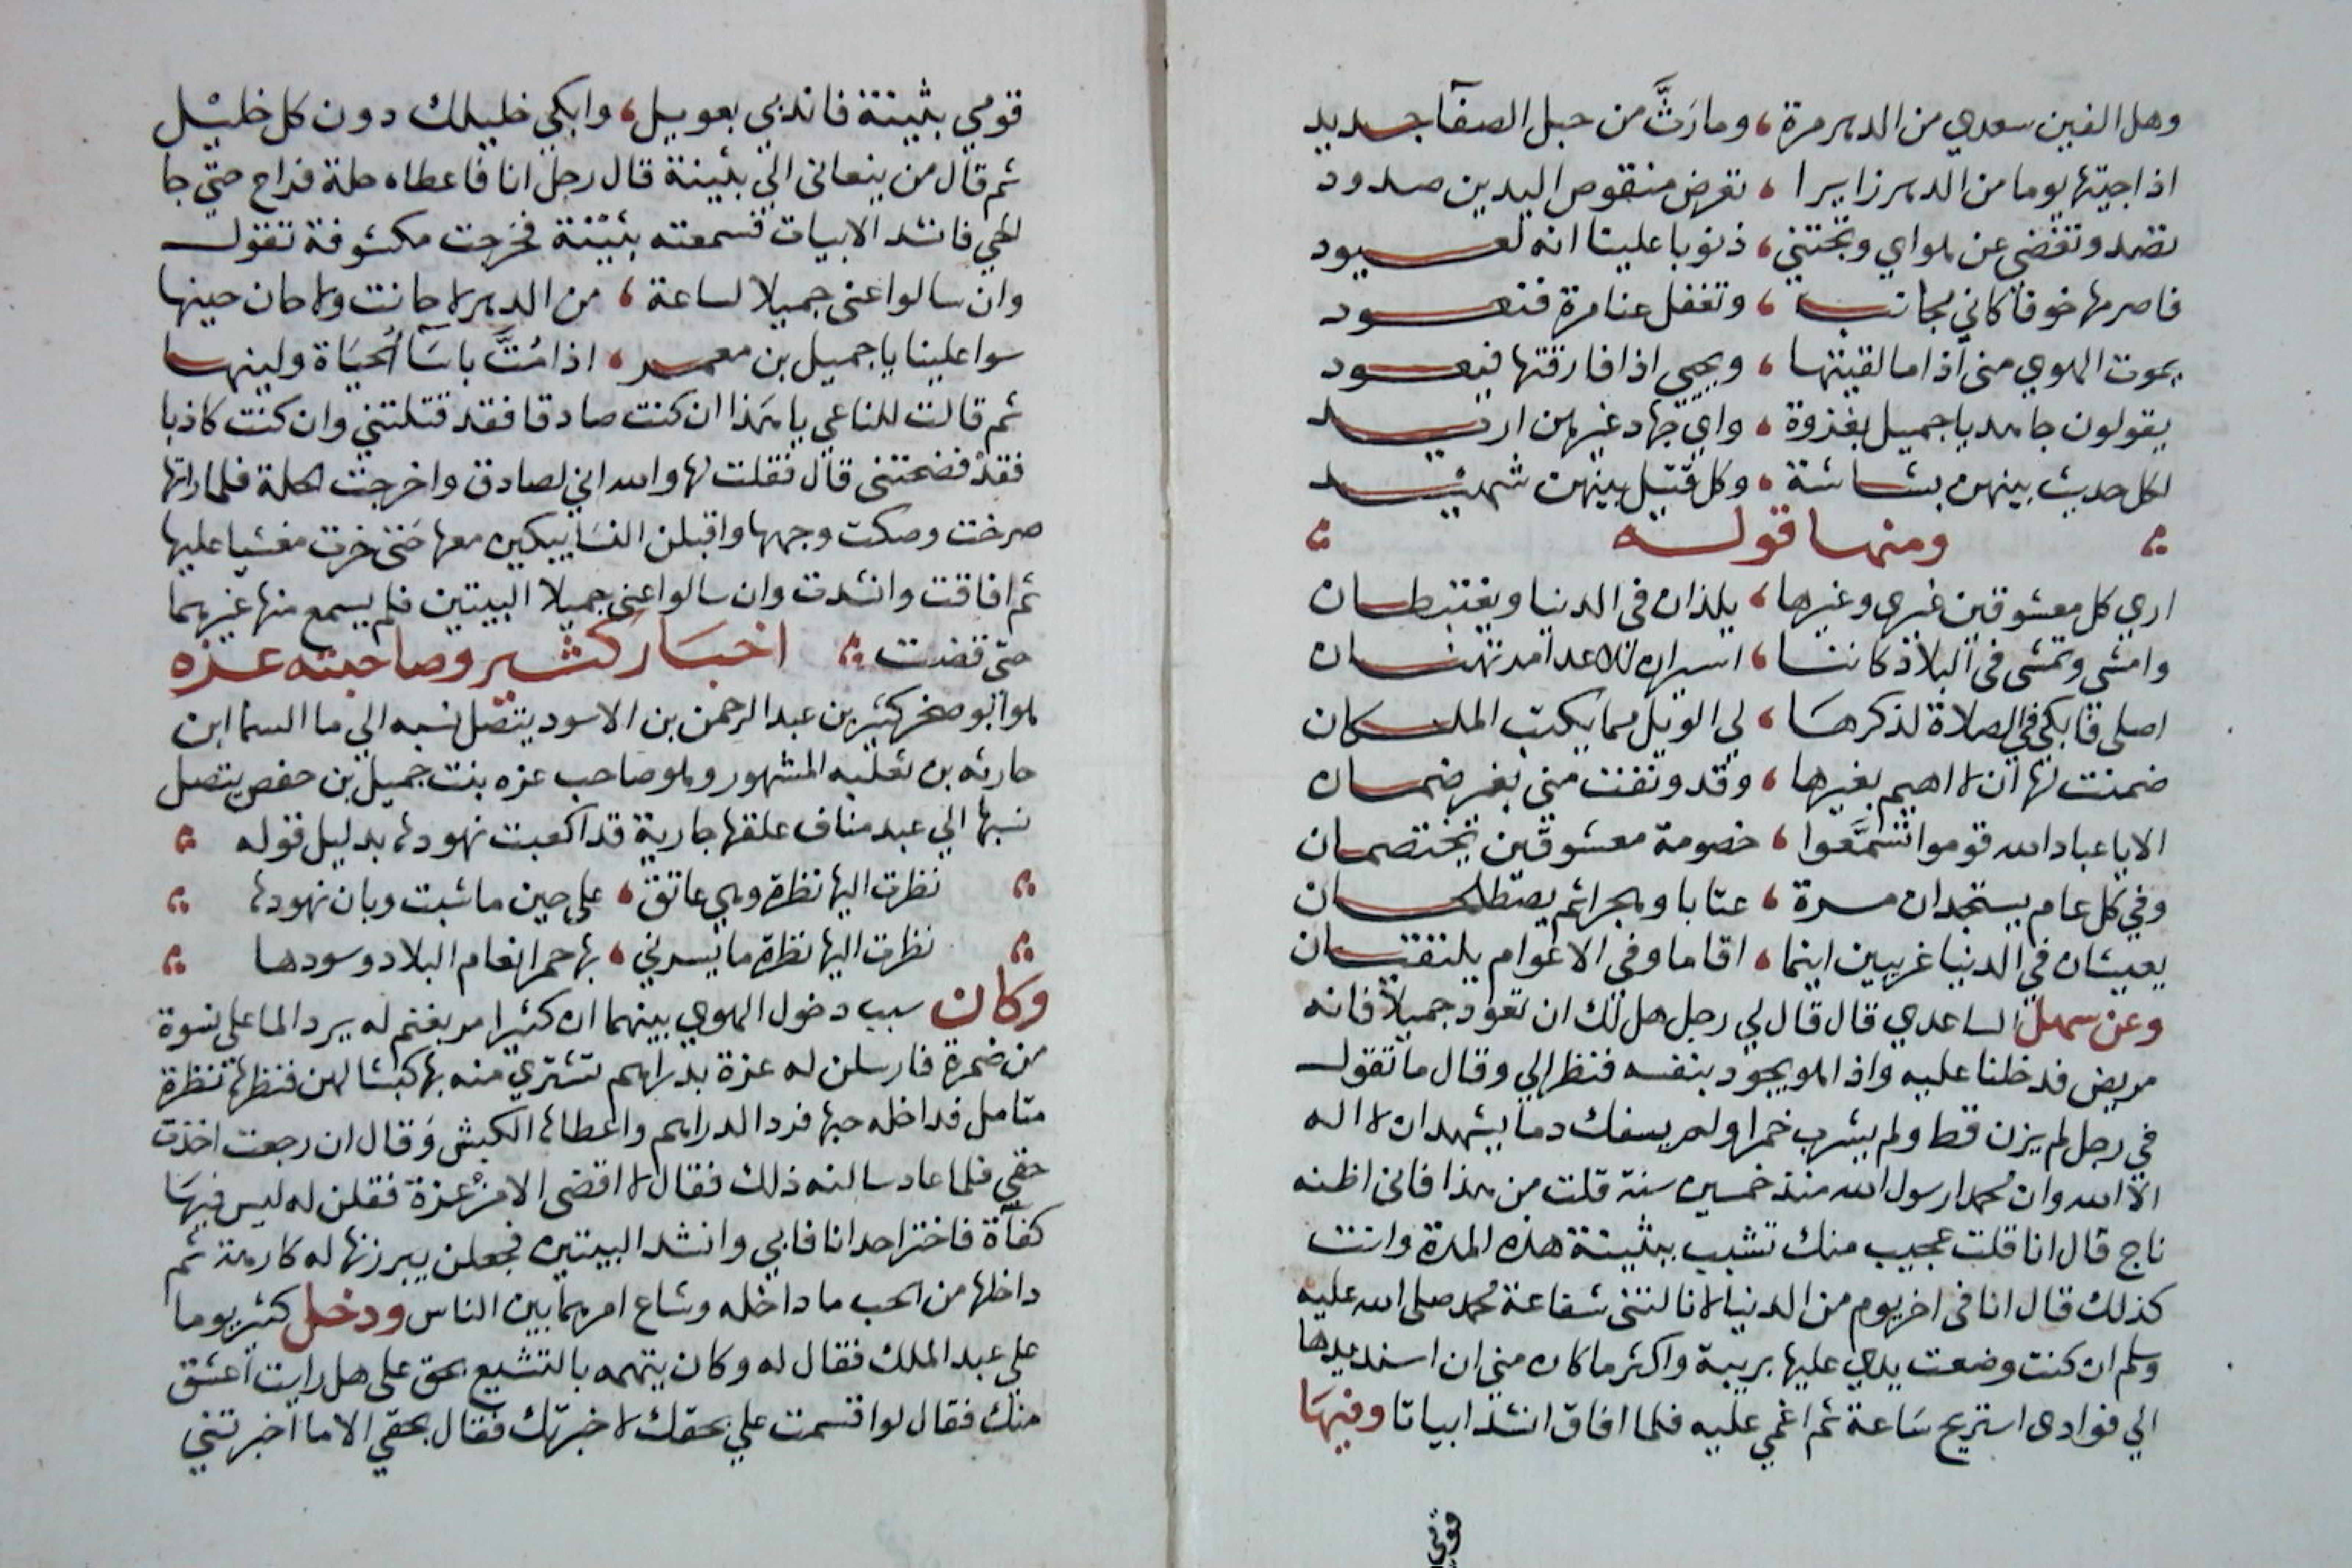 وهل الفين سعدي من الدهر مرة ، وما رَثَّ من حبل الصفآ جديد
اذا جيتها يوما من الدهر زايرا ، تعرض منقوص اليدين صدود
تصد وتغضي عن هواي وتجتني ، ذنوبا علينا انه لعيود
فاصرمها خوفا كاني مجانب ، وتغفل عنا مرة فنعود
يموت الهوي مني اذا ما لقيتها ، ويحيى اذا فارقتها فيعود
يقولون جاهد يا جميل بغزوة ، واي جهاد غيرهن اريد
لكل حديث بينهن بشاشة ، وكل قتيل بينهن شهيد
ومنها قوله
اري كل معشوقين غيري وغيرها ، يلذان في الدنيا ويغتبطان
وامشي وتمشي في البلاد كاننا ، اسيران للاعدا مرتهنان
اصلي فابكي في الصلاة لذكرها ، لي الويل مما يكتب الملكان
ضمنت لها ان لا اهيم بغيرها ، وقد وثقت مني بغير ضمان
الا يا عباد الله قوموا تسَمَّعوا ، خصومة معشوقين يختصمان
وفي كل عام يستجدان مرة ، عتابا وهجرا ثم يصطلحان
يعيشان في الدنيا غريبين اينما ، اقاما وفي الاعوام يلتقيان
وعن سهل الساعدي قال قال لي رجل هل لك ان تعود جميلا فانه
مريض فدخلنا عليه واذا هو يجود بنفسه فنظر الي وقال ما تقول
في رجل لم يزن قط ولم يشرب خمرا ولم يسفك دما يشهد ان لا اله
الا الله وان محمدا رسول الله منذ خمسين سنة قلت من هذا فاني اظنه
ناج قال انا قلت عجيب منك تشبب ببثينة هذه المدة وانت
كذلك قال انا في اخر يوم من الدنيا لا نالتني شفاعة محمد صلى الله عليه
وسلم ان كنت وضعت يدي عليها بريبة واكثر ما كان مني ان اسند يدها
الي فوادي استريح ساعة ثم اغمي عليه فلما افاق انشد ابياتا وفيها
قومي
قومي بثينة فاندبي بعويل ، وابكي خليلك دون كل خليل
ثم قال من ينعاني الي بثينة قال رجل انا فاعطاه حلة فراح حتي جا
الحي فانشد الابيات فسمعته بثينة فخرجت مكشوفة تقول
وان سالوا عني جميلا لساعة ، من الدهر لا حانت ولا حان حينها
سوا علينا يا جميل بن معمر ، اذا مُتَّ باسَآ الحيَاة ولينها
ثم قالت للناعي يا هذا ان كنت صادقا فقد قتلتني وان كنت كاذبا
فقد فضحتني قال فقلت لها والله اني لصادق واخرجت الحلة فلما راتها
صرخت وصكت وجهها واقبلن النسا يبكين معها حتي خرت مغشيا عليها
ثم افاقت وانشدت وان سالوا عني جميلا البيتين فلم يسمع منها غيرهما
حتي قضت اخبار كثير وصاحبته عزه
هو ابو صخر كثير بن عبد الرحمن بن الاسود يتصل نسبه الي ما السما ابن
حارثه بن ثعلبه المشهور وهو صاحب عزه بنت جميل بن حفص يتصل
نسبها الي عبد مناف علقها جارية قد اكعبت نهودها بدليل قوله
نظرت اليها نظرة وهي عاتق ، علي حين ما شبت وبان نهودها
نظرت اليها نظرة ما يسرني ، بها حمر انعام البلاد وسودها
وكان سبب دخول الهوي بينهما ان كثيرا مر بغنم له يرد الما علي نسوة
من ضمرة فارسلن له عزة بدراهم تشتري منه بها كبشا لهن فنظرها نظرة
متامل فداخله حبها فرد الدراهم واعطاها الكبش وقال ان رجعت اخذت
حقي فلما عاد سالنه ذلك فقال لا اقضى الا من عزة فقلن له ليس فيها
كفآة فاختر احدانا فابي وانشد البيتين فجعلن يبرزنها له كارهة ثم
داخلها من الحب ما داخله وشاع امرهما بين الناس ودخل كثير يوما
علي عبد الملك فقال له وكان يتهمه بالتشيع بحق علي هل رايت اعشق
منك فقال لو اقسمت علي بحقك لاخبرتك فقال بحقي الا ما اخبرتني